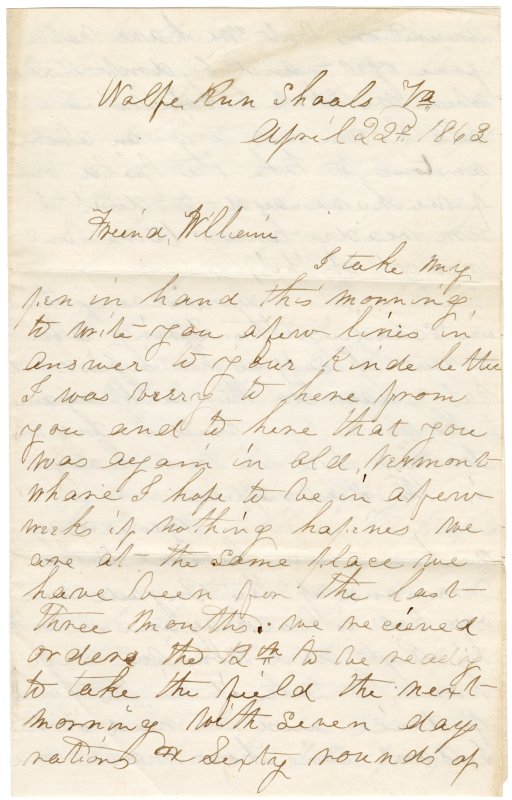 Wolfe Run Shoals Va
April 22d 1863
Freind William
I take my
pen in hand this morning
to write you afew lines in
answer to your Kinde letter
I was verry to here from
you and to here that you
was again in old Vermont
whare I hope to be in afew
weeks if nothing hapines we
are at the same place we
have been for the last
three months. we recieved
orders the 12th to be ready
to take the field the next
morning with seven days
rations & Sixty rounds of